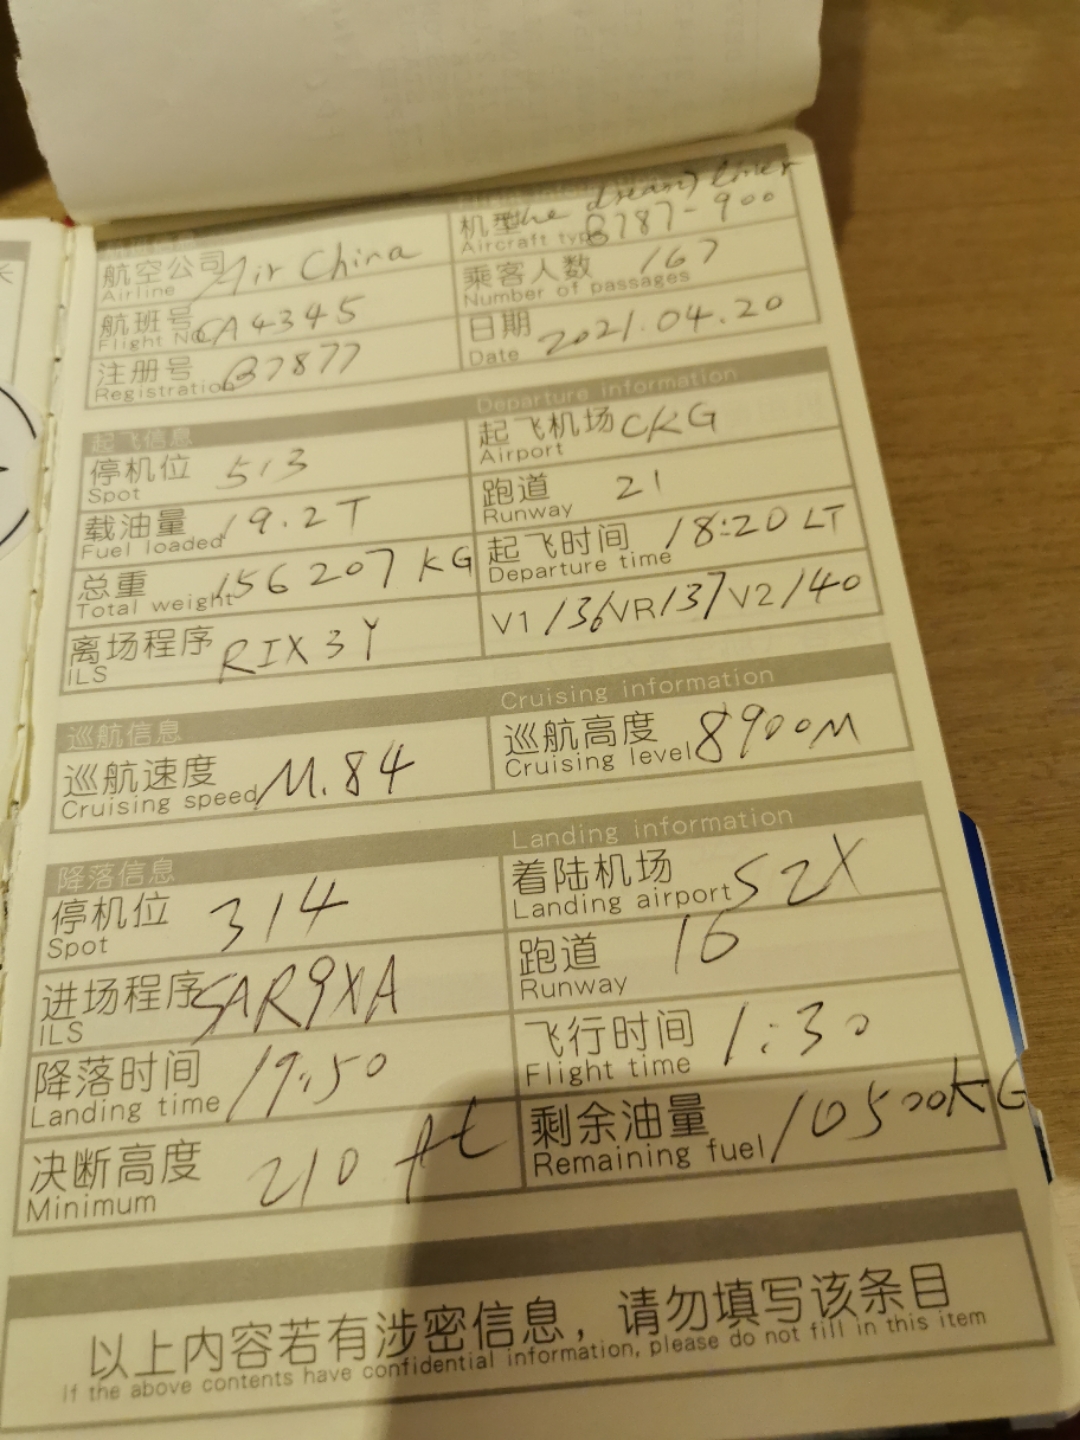 The dream liner
航空公司 Air China 机型 B787-900
Airline Aircraft type
航班号 CA4345 乘客人数 167
Flight No Number of passages
注册号 B7877 日期 2021.04.20
Registration Date
起飞信息 Departure information
停机位 513 起飞机场 CKG
Spot Airport
载油量 19.2T 跑道 21
Fuel loaded Runway
总重 156207 KG 起飞时间 18:20 LT
Total weight Departure time
离场程序 RIX3Y V1 136 VR 137 V2 140
ILS
巡航信息 Cruising information
巡航速度 M.84 巡航高度 8900M
Cruising speed Cruising level
降落信息 Landing information
停机位 314 着陆机场 SZX
Spot Landing airport
进场程序 SAR9XA 跑道 16
ILS Runway
降落时间 19:50 飞行时间 1:30
Landing time Flight time
决断高度 210 ft 剩余油量 10500KG
Minimum Remaining fuel
以上内容若有涉密信息，请勿填写该条目
If the above contents have confidential information, please do not fill in this item